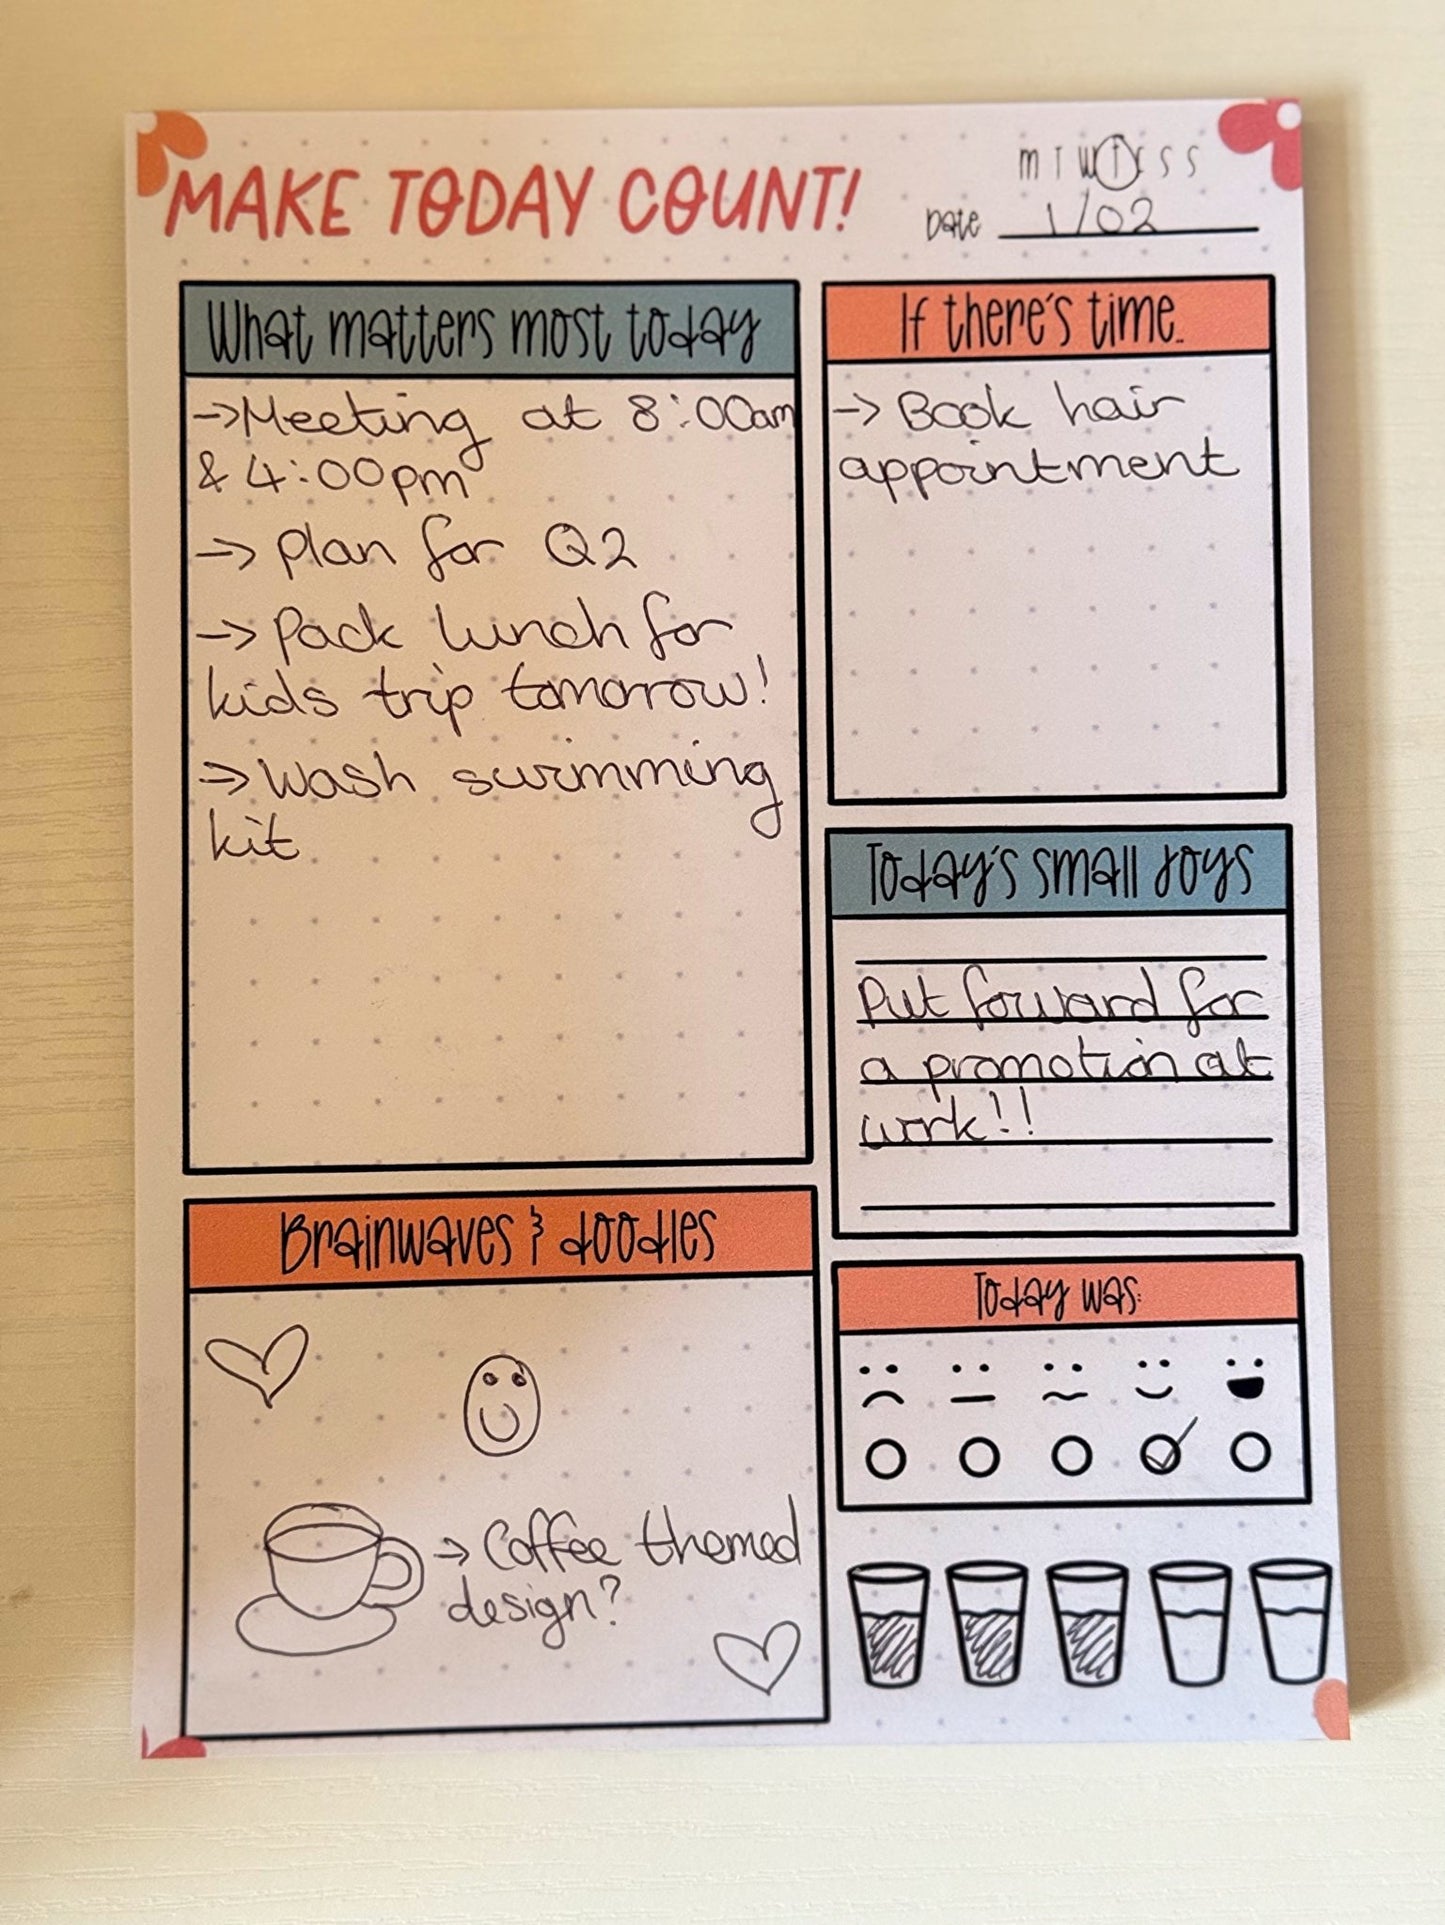 MAKE TODAY COUNT!
M T W T F S S
Date 1/02
What matters most today
->Meeting at 8:00am
& 4:00pm
-> Plan for Q2
-> Pack lunch for
kids trip tomorrow!
-> Wash swimming
kit
If there's time..
-> Book hair
appointment
Today's small joys
Put forward for
a promotion at
work!!
Brainwaves & doodles
-> Coffee themed
design?
Today was: